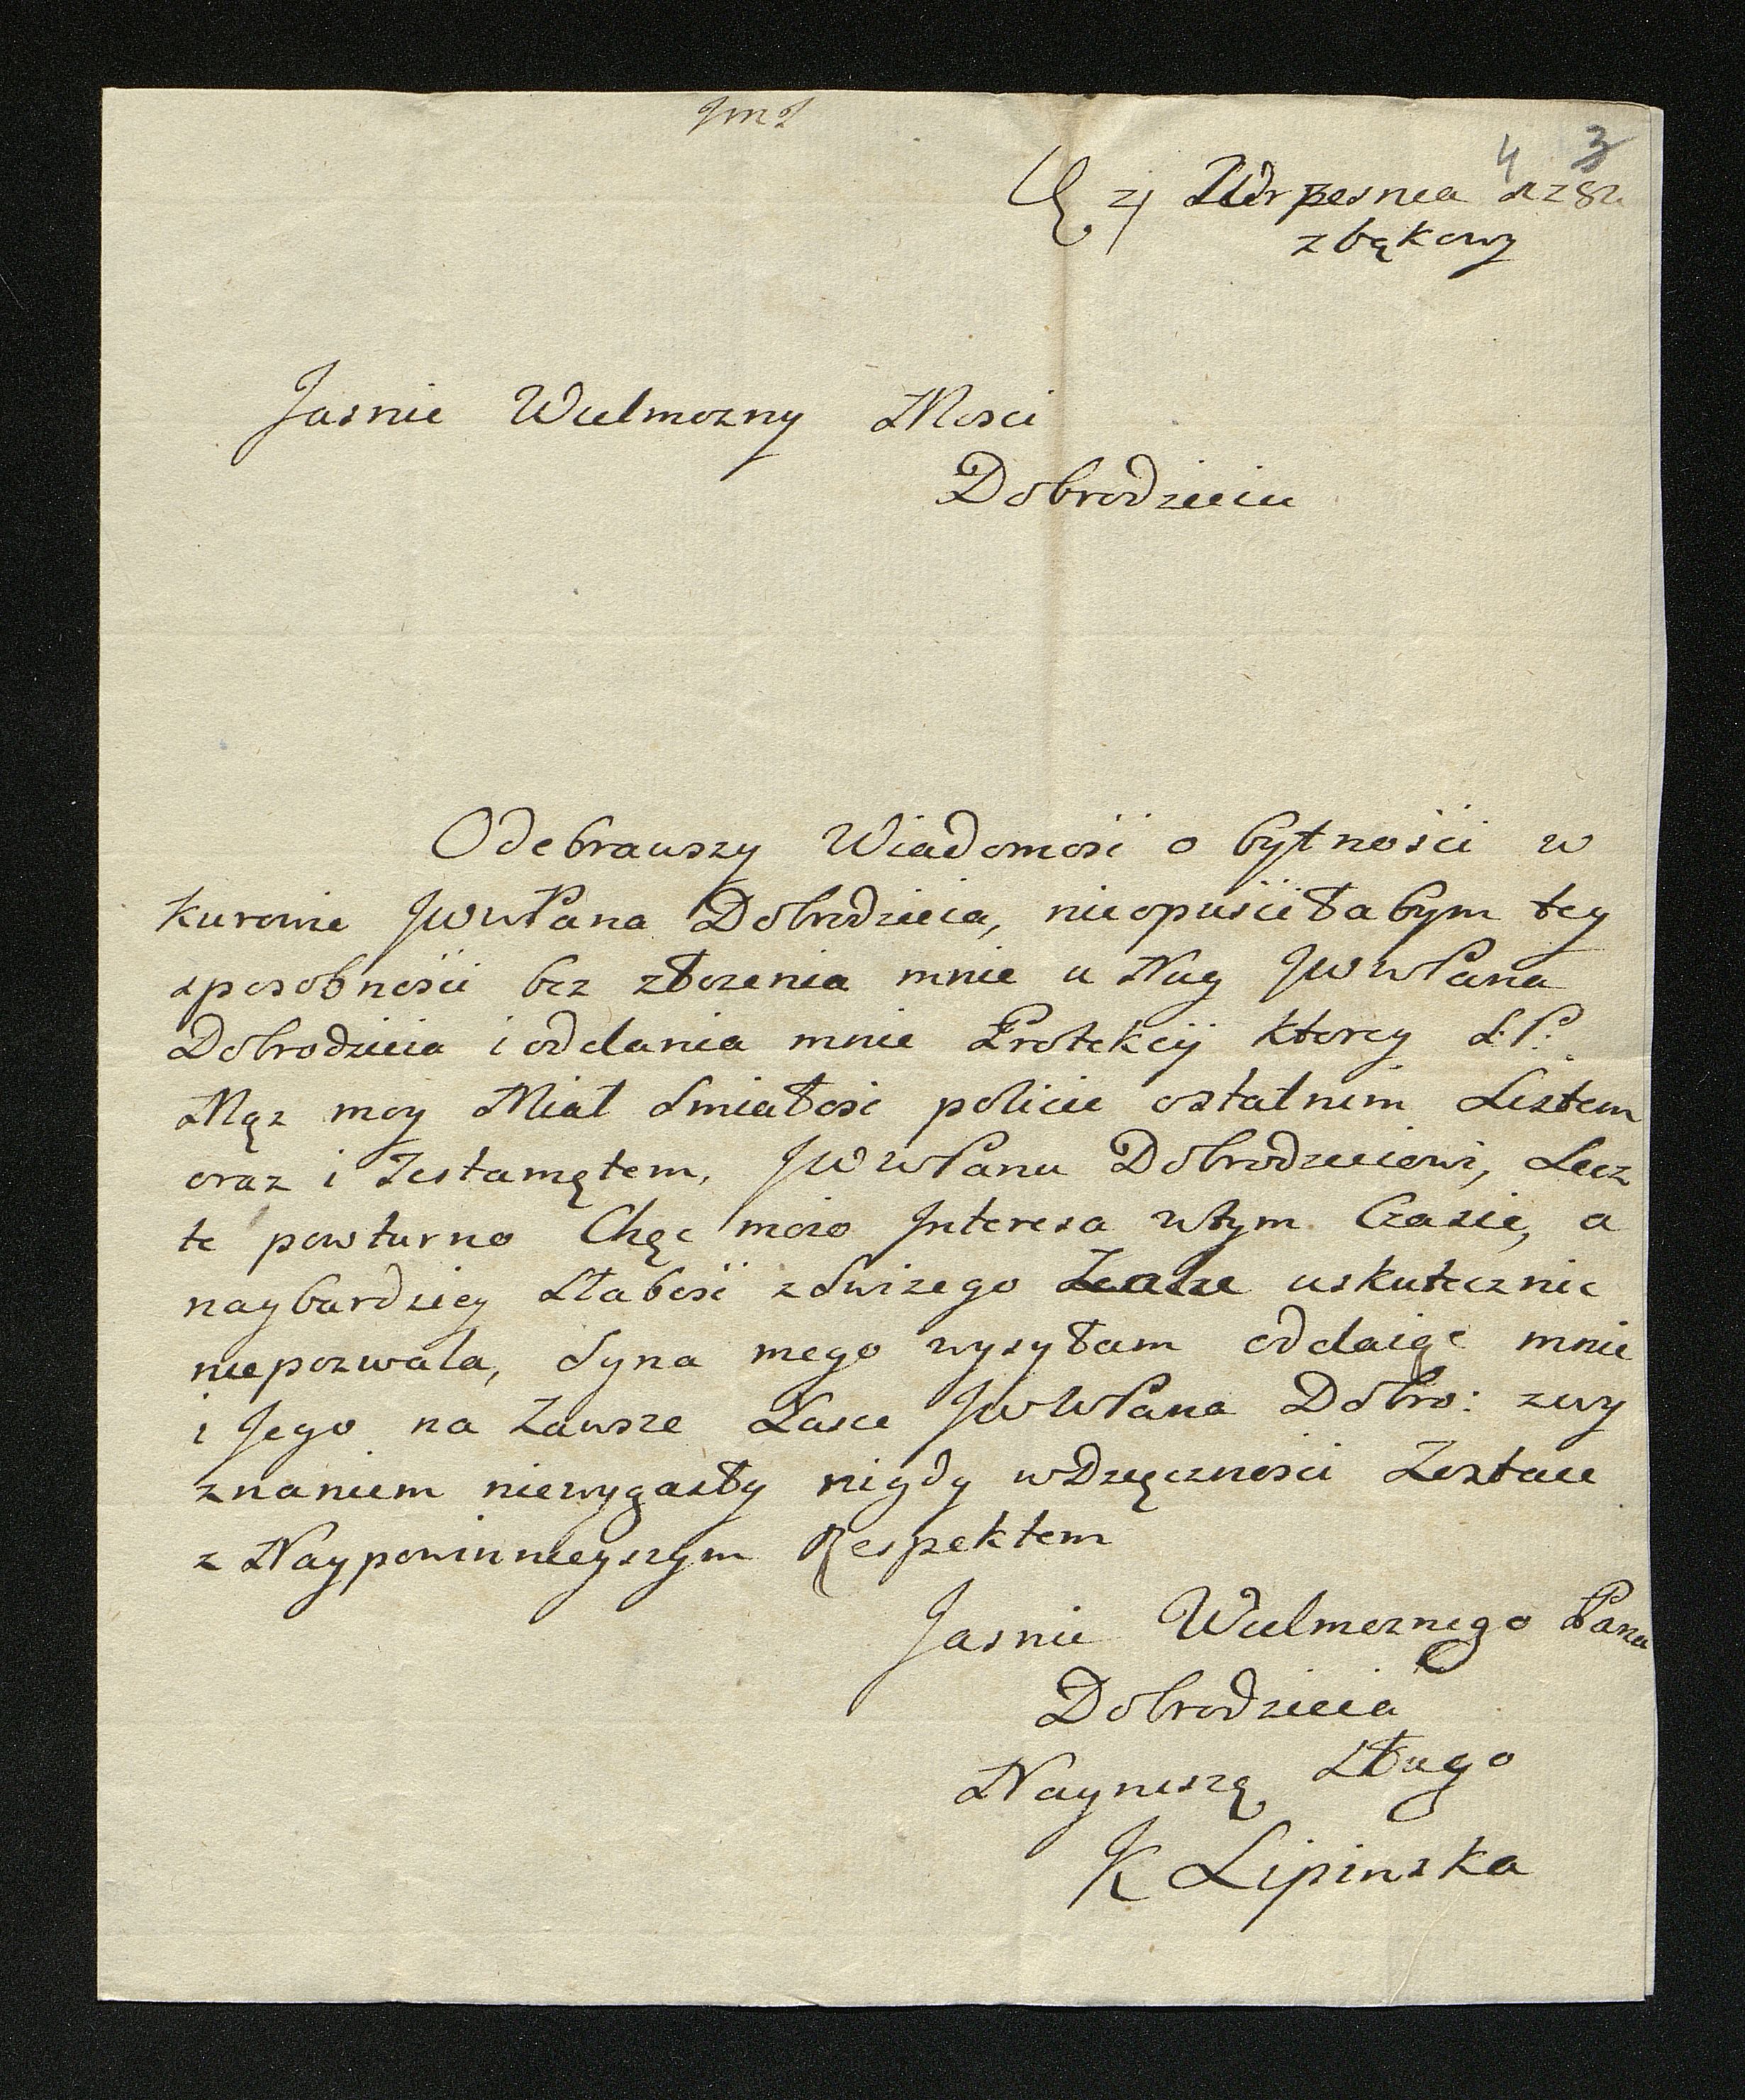 4 3
zbąkowy
Jasnie Wielmozny Mosci
Dobrodzieiu
Odebrawszy Wiadomość o bytności w
Kurowie JWWPana Dobrodzieia, nieopuściłabym tey
sposobności bez złozenia mnie u Nug JWWPana
Dobrodzieia i oddania mnie Protekcij ktorey S: P:
Mąz moy Miał Smiałość policić ostatnim Listem
oraz i Testamętem, JWWPanu Dobrodzieiowi, Lecz
te powturno Chęć moio Interesa wtym Czasie, a
naybardziey Słabość zSwizego uskutecznic
niepozwala, Syna mego wysyłam oddaiąc mnie
i Jego na Zawsze Łasce JWWPana Dobro: zwy
znaniem niewygasły nigdy wdzięcznosci Zostaie
z Naypowinnieyszym Respektem
Jasnie Wielmoznego Pana
Dobrodzieia
Nayniszą Sługo
K Lipinska